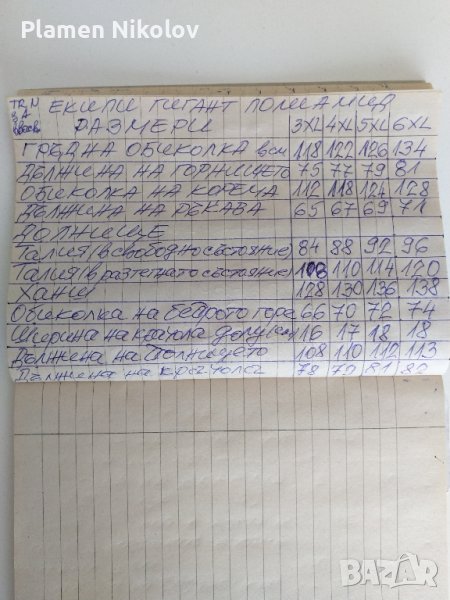 Plamen Nikolov
TR, N
ЕКИПИ ГИГАНТ ПОЛИАМИД
РАЗМЕРИ 3XL 4XL 5XL 6XL
ГРЕДНА ОБИКОЛКА в см 118 122 126 134
ДЪЛЖИНА НА ГОРНИЩЕТО 75 77 79 81
ОБИКОЛКА НА КОРЕМА 112 118 124 128
ДЪЛЖИНА НА РЪКАВА 65 67 69 71
ДОЛНИЩЕ
Талия (в свободно състояние) 84 88 92 96
Талия (в разтегнато състояние) 108 110 114 120
Ханш 128 130 136 138
Обиколка на бедрото горе 66 70 72 74
Ширина на крачола долу 16 17 18 18
Дължина на долнището 108 110 112 113
Дължина на крачола 78 79 81
BAZAR